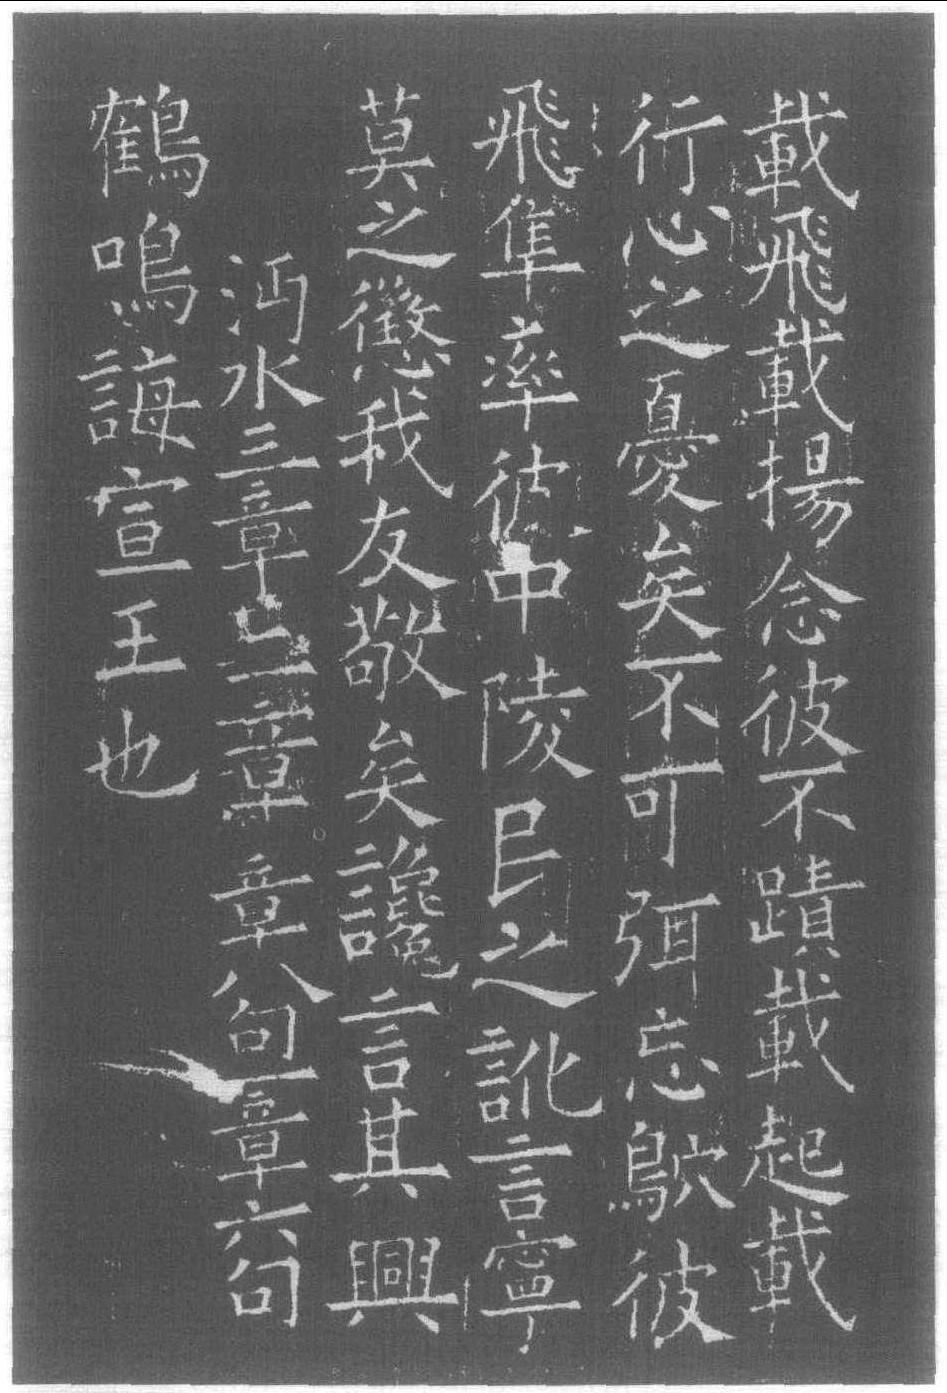 載飛載揚念彼不蹟載起載
行心之憂矣不可弭忘鴥彼
飛隼率彼中陵民之訛言寧
莫之懲我友敬矣讒言其興
沔水三章二章章八句一章六句
鶴鳴誨宣王也